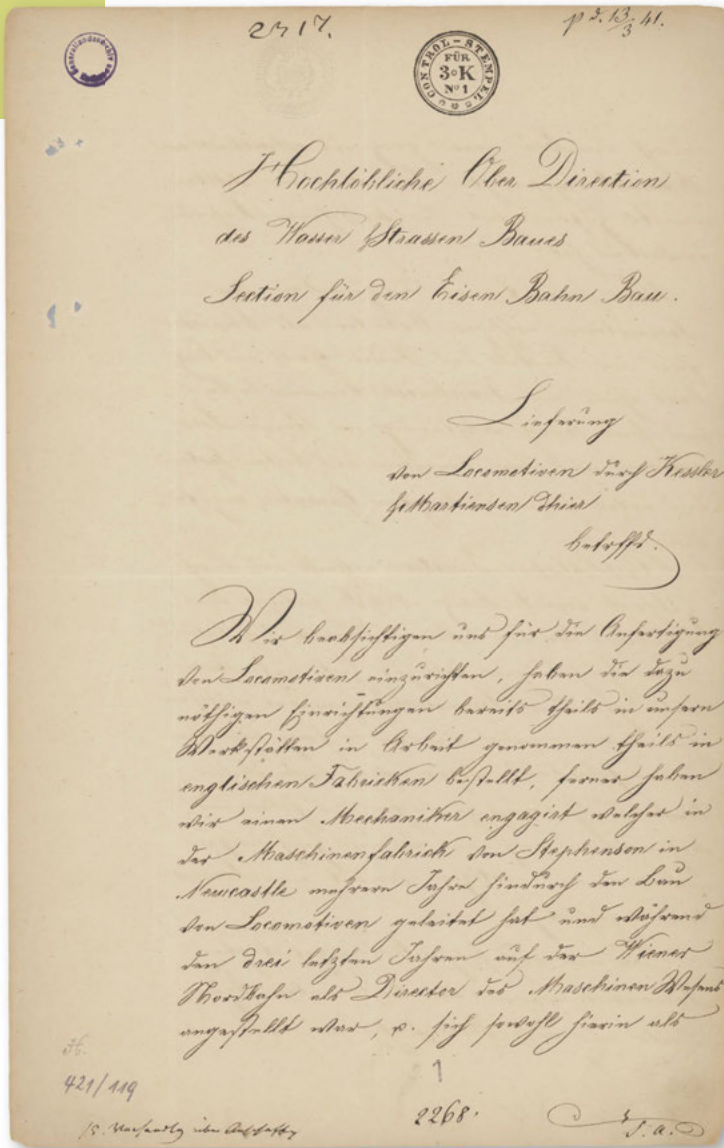 2717.
p d. 13/3 41.
Generallandesarchiv
CONTROL-STEMPEL
FÜR
3·K
Nº 1
Hochlöbliche Ober Direction
des Wasser & Strassen Baues
Section für den Eisen Bahn Bau.
Lieferung
von Locomotiven durch Kessler
& Martiensen dhier
betreffd.
Wir beabsichtigen uns für die Anfertigung
von Locomotiven einzurichten, haben die dazu
nöthigen Einrichtungen bereits theils in unsern
Werkstätten in Arbeit genommen theils in
englischen Fabricken bestellt, ferner haben
wir einen Mechaniker engagirt welcher in
der Maschinenfabrick von Stephenson in
Newcastle mehrere Jahre hindurch den Bau
von Locomotiven geleitet hat und während
den drei letzten Jahren auf der Wiener
Nordbahn als Director des Maschinen Wesens
angestellt war, u. sich sowohl hierin als
421/119
1
2268.
T. a.